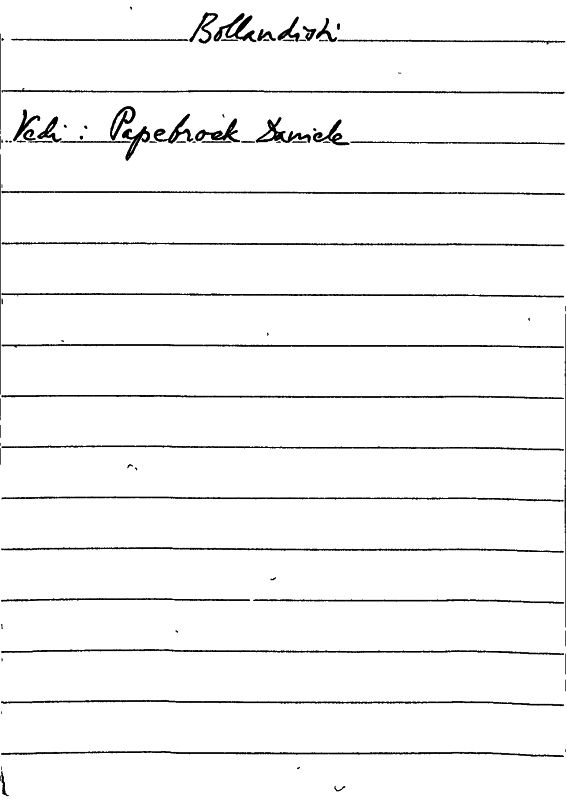 Bollandisti
Vedi : Papebroek Daniele